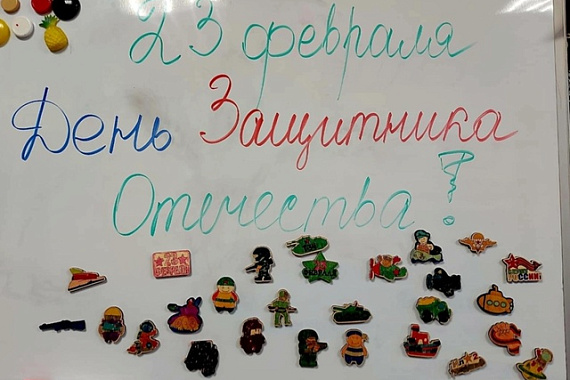 23 февраля
День Защитника
Отечества!